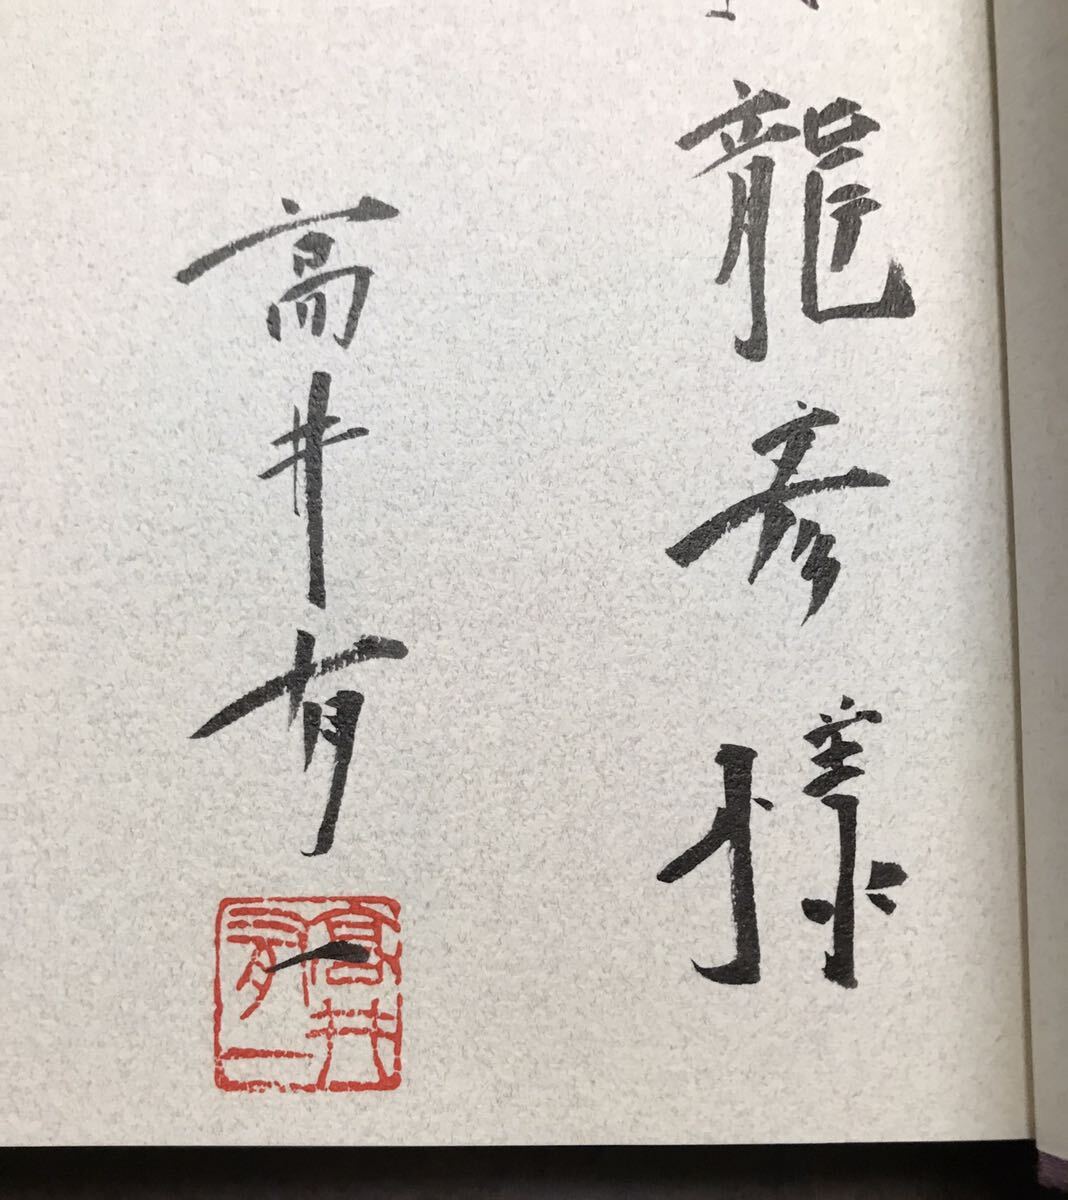 龍彦様
高井有一
高井有一